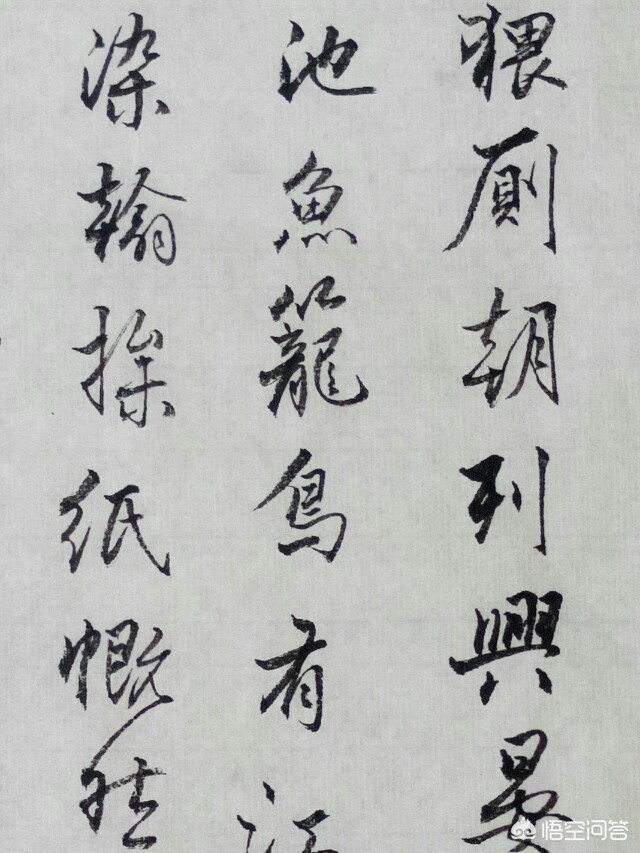 猥厠朝列興晏
池魚籠鳥有江
染翰操紙慨然
悟空问答